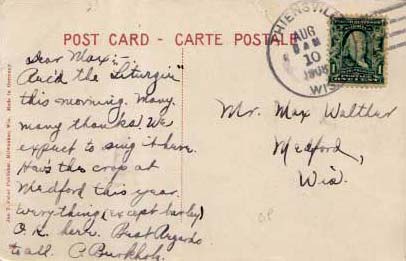 POST CARD - CARTE POSTALE
THIENSVILLE
AUG
10
1908
WIS.
Dear Max:-
Rec'd the "Liturgie"
this morning. Many,
many thanks! We
expect to sing it here.
How's the crop at
Medford this year.
Everything (except barley)
O.K. here. Best Regards
to all. P. Burkholz.
Mr. Max Walther
Medford,
Wis.
Made in Germany.